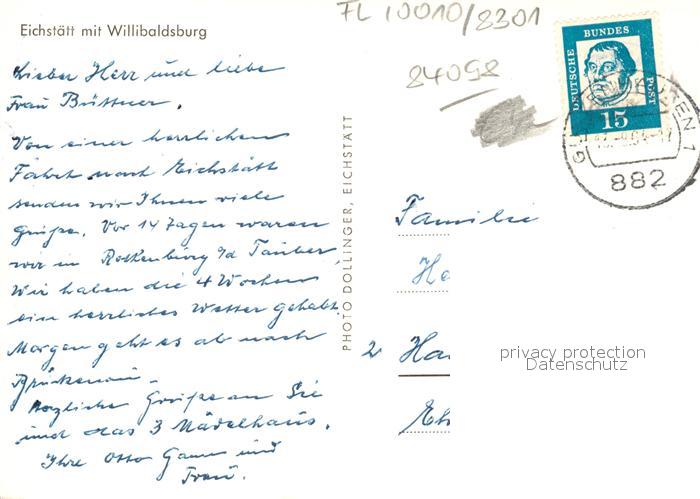 Eichstätt mit Willibaldsburg
FL 10010/8301
84098
DEUTSCHE BUNDESPOST
15
882
Lieber Herr und liebe
Frau Büttner.
Von einer herrlichen
Fahrt nach Eichstätt
senden wir Ihnen viele
Grüße. Vor 14 Tagen waren
wir in Rothenburg o/d Tauber.
Wir haben die 4 Wochen
ein herrliches Wetter gehabt.
Morgen geht es ab nach
Brückenau.
Herzliche Grüße an Sie
und das 3 Mädelhaus.
Ihre Otto Gamm und
Frau.
PHOTO DOLLINGER, EICHSTÄTT
Familie
Ha
2 Ha
privacy protection
Datenschutz